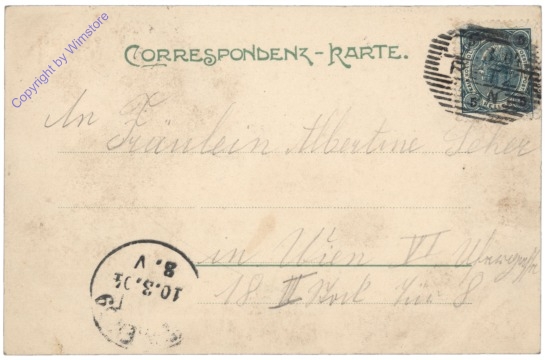 Copyright by Wimstore
CORRESPONDENZ-KARTE.
An
Fräulein Albertine
in Wien VI
18 II Stock Tür 8
10.3.04
8.V
5